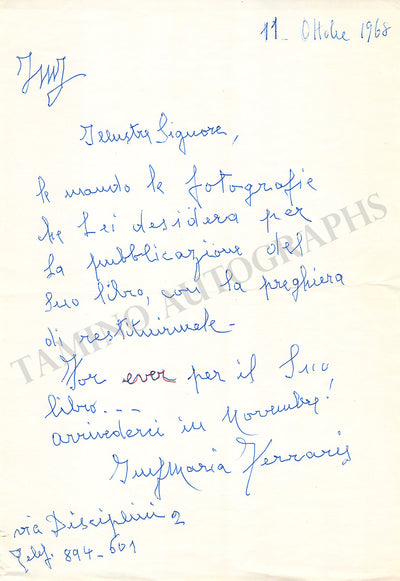 11 - Ottobre 1968
IMF
Illustre Signore,
le mando le fotografie
che Lei desidera per
la pubblicazione del
Suo libro, con la preghiera
di restituirmele -
For ever per il Suo
libro...
arrivederci in Novembre!
Ines Maria Ferraris
via Disciplini 2
Telef. 894-601
TAMINO AUTOGRAPHS